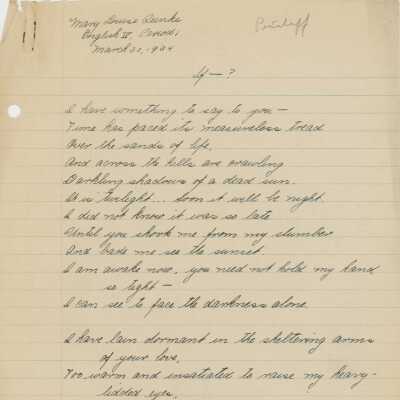 Mary Louise
English IV, Period 1
March 31, 1924
If — ?
I have something to say to you —
Time has paced its measureless tread
Over the sands of life,
And across the hills are crawling
Darkling shadows of a dead sun.
It is twilight... soon it will be night.
I did not know it was so late
Until you shook me from my slumber
And bade me see the sunset.
I am awake now, you need not hold my hand
so tight —
I can see to face the darkness alone.
I have lain dormant in the sheltering arms
of your love,
Too warm and insatiated to raise my heavy-
lidded eyes,